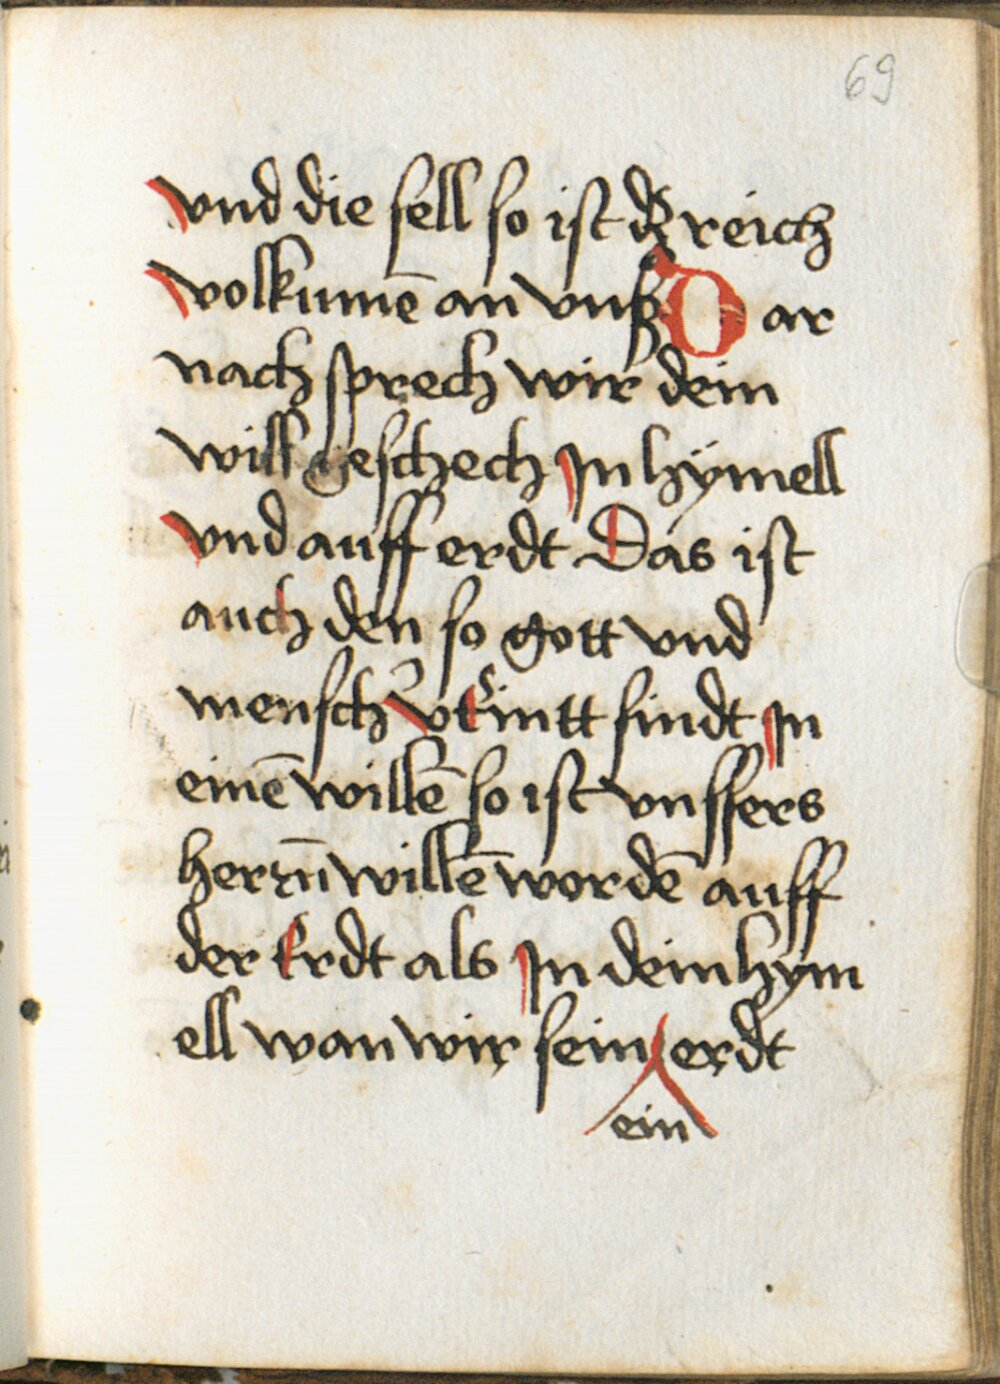 69
vnd die sell so ist dz reich
volkumē an vnß Dar
nach sprech wir dein
will geschech Jn hÿmell
vnd auff erdt Das ist
auch den so gott vnd
mensch vͤtͤintt sindt Jn
einē willē so ist vnssers
herrn̄ willē wordē auff
der Erdt als Jn dem hym
ell wan wir sein erdt
ein